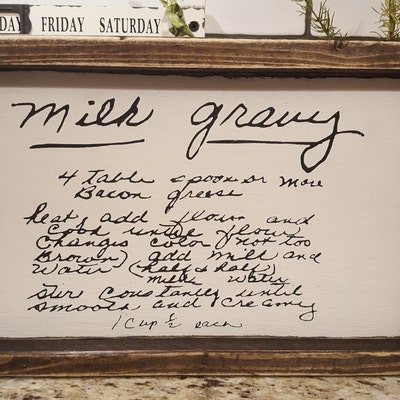 DAY FRIDAY SATURDAY
Milk gravy
4 table spoon or more
Bacon grease
heat, add flour and
cook until flour
changes color (not too
Brown) add milk and
water (half & half)
milk water
stir constantly until
smooth and creamy
1 cup ½ each